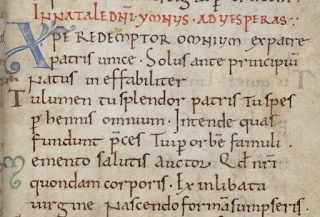 IN NATALE DNI. YMNUS. AD VESPERAS:
XPE REDEMPTOR OMNIUM expatre
patris unice. Solus ante principiū
Natus in effabiliter
Tu lumen tu splendor patris tu spes
phennis omnium. Intende quas
fundunt pces Tui p orbē famuli.
emento salutis auctor Qd nri
quondam corporis. Ex inlibata
uirgine Nascendo formā sumpseris.